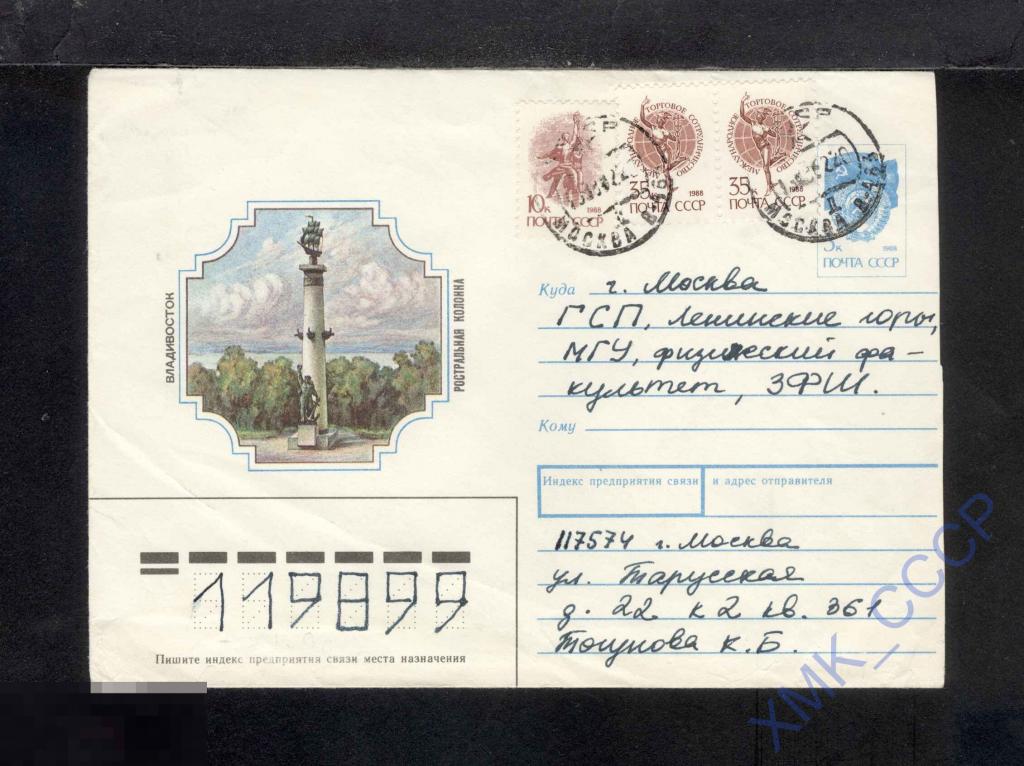 ВЛАДИВОСТОК
РОСТРАЛЬНАЯ КОЛОННА
10к 1988
ПОЧТА СССР
МЕЖДУНАРОДНОЕ ТОРГОВОЕ СОТРУДНИЧЕСТВО
35к 1988
ПОЧТА СССР
МЕЖДУНАРОДНОЕ ТОРГОВОЕ СОТРУДНИЧЕСТВО
35к 1988
ПОЧТА СССР
5к 1988
ПОЧТА СССР
МОСКВА
МОСКВА
Куда г. Москва
ГСП, Ленинские горы,
МГУ, физический фа-
культет, ЗФШ.
Кому
Индекс предприятия связи и адрес отправителя
117574 г. Москва
ул. Тарусская
д. 22 к 2 кв. 361
Тогунова К.Б.
119899
Пишите индекс предприятия связи места назначения
ХМК_СССР